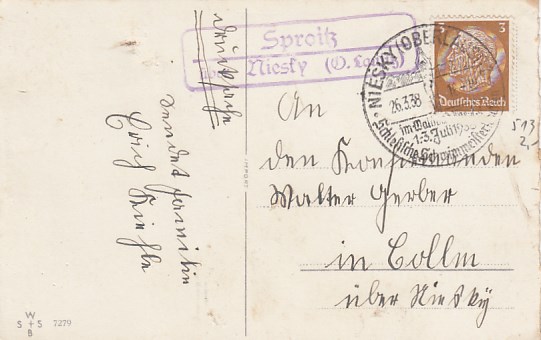 Drucksache
Sproitz
Niesky (O. Laus.)
NIESKY (OBERLAUS
26.3.38
im Waldbad
1.-3. Juli 1938
Schlesische Schwimmeisters
3
Deutsches Reich
513
2,-
An
den Konfirmanden
Walter Gerber
in Collm
über Niesky
sendet Familie
Erich
W
S + S
B
7279